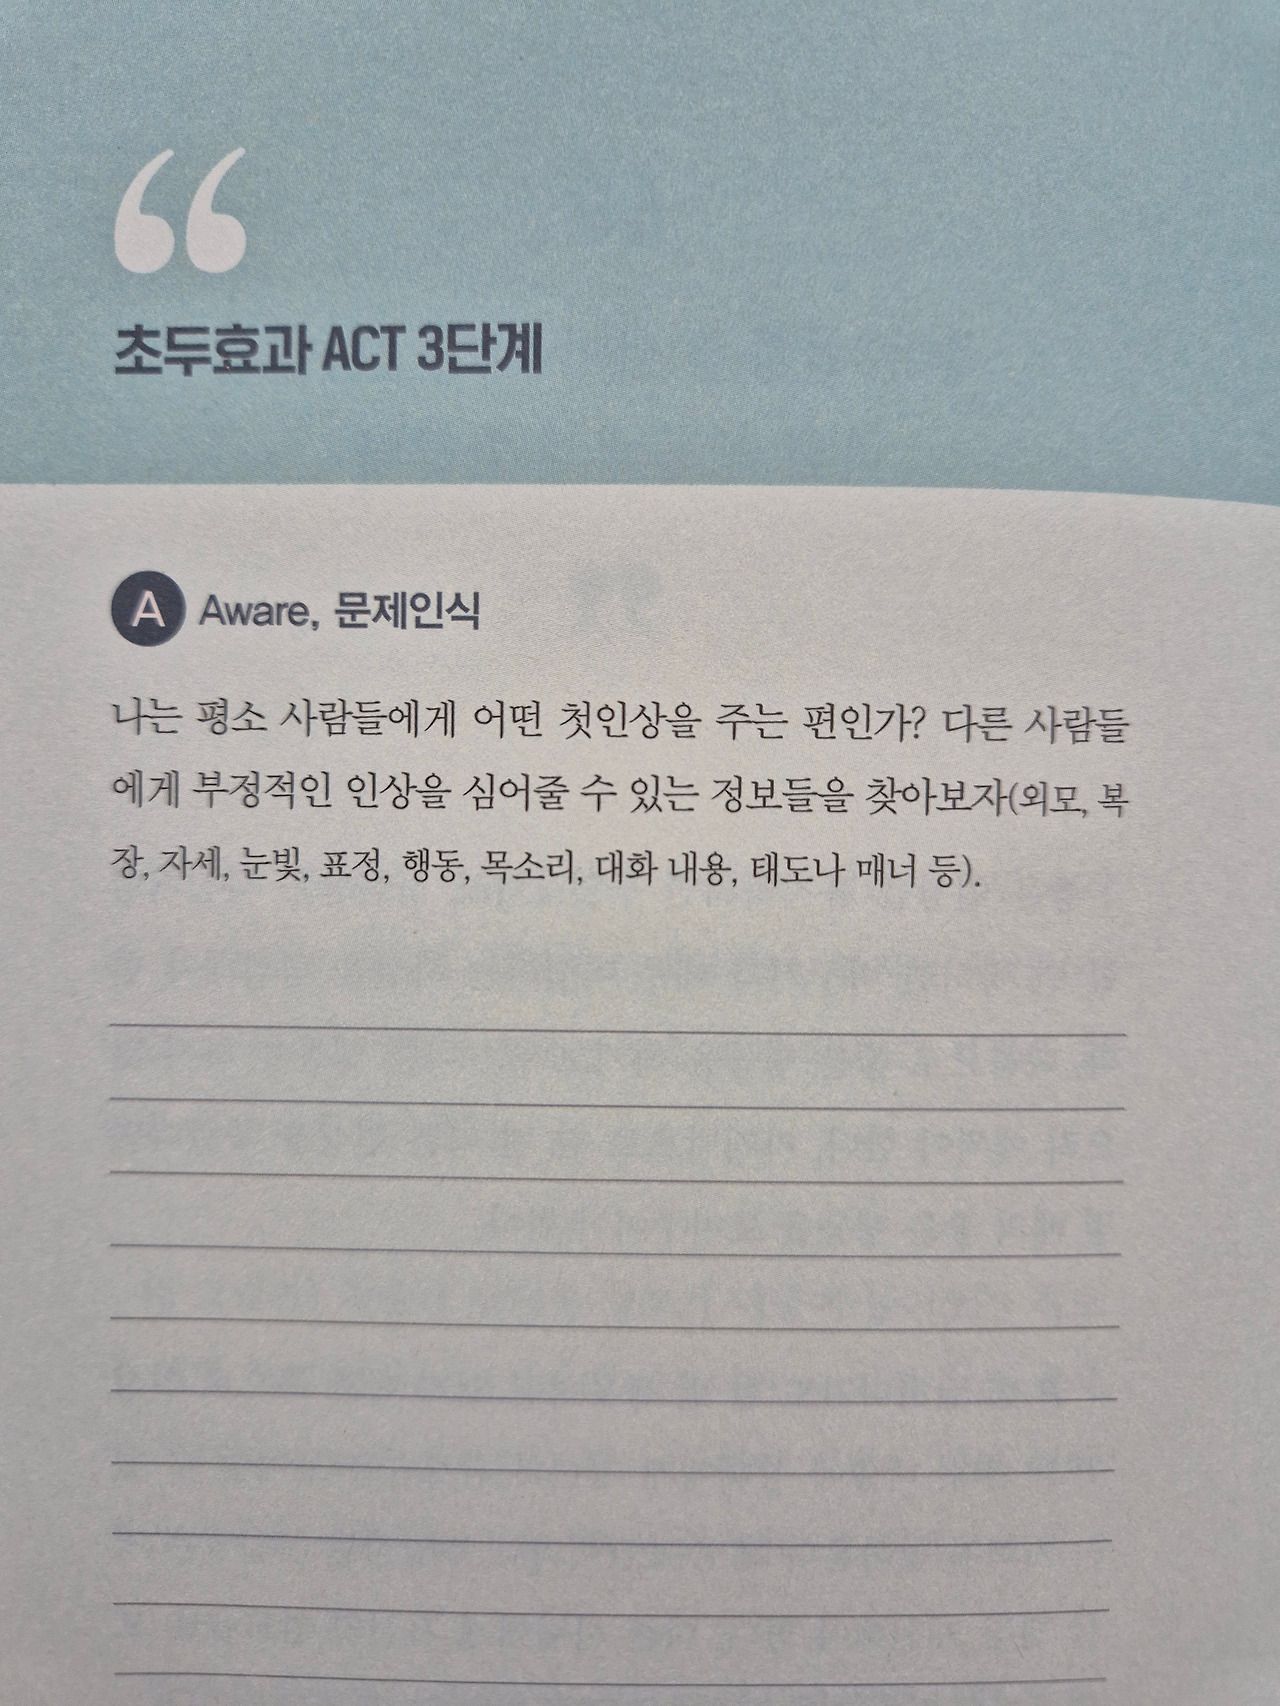 초두효과 ACT 3단계
A Aware, 문제인식
나는 평소 사람들에게 어떤 첫인상을 주는 편인가? 다른 사람들
에게 부정적인 인상을 심어줄 수 있는 정보들을 찾아보자(외모, 복
장, 자세, 눈빛, 표정, 행동, 목소리, 대화 내용, 태도나 매너 등).